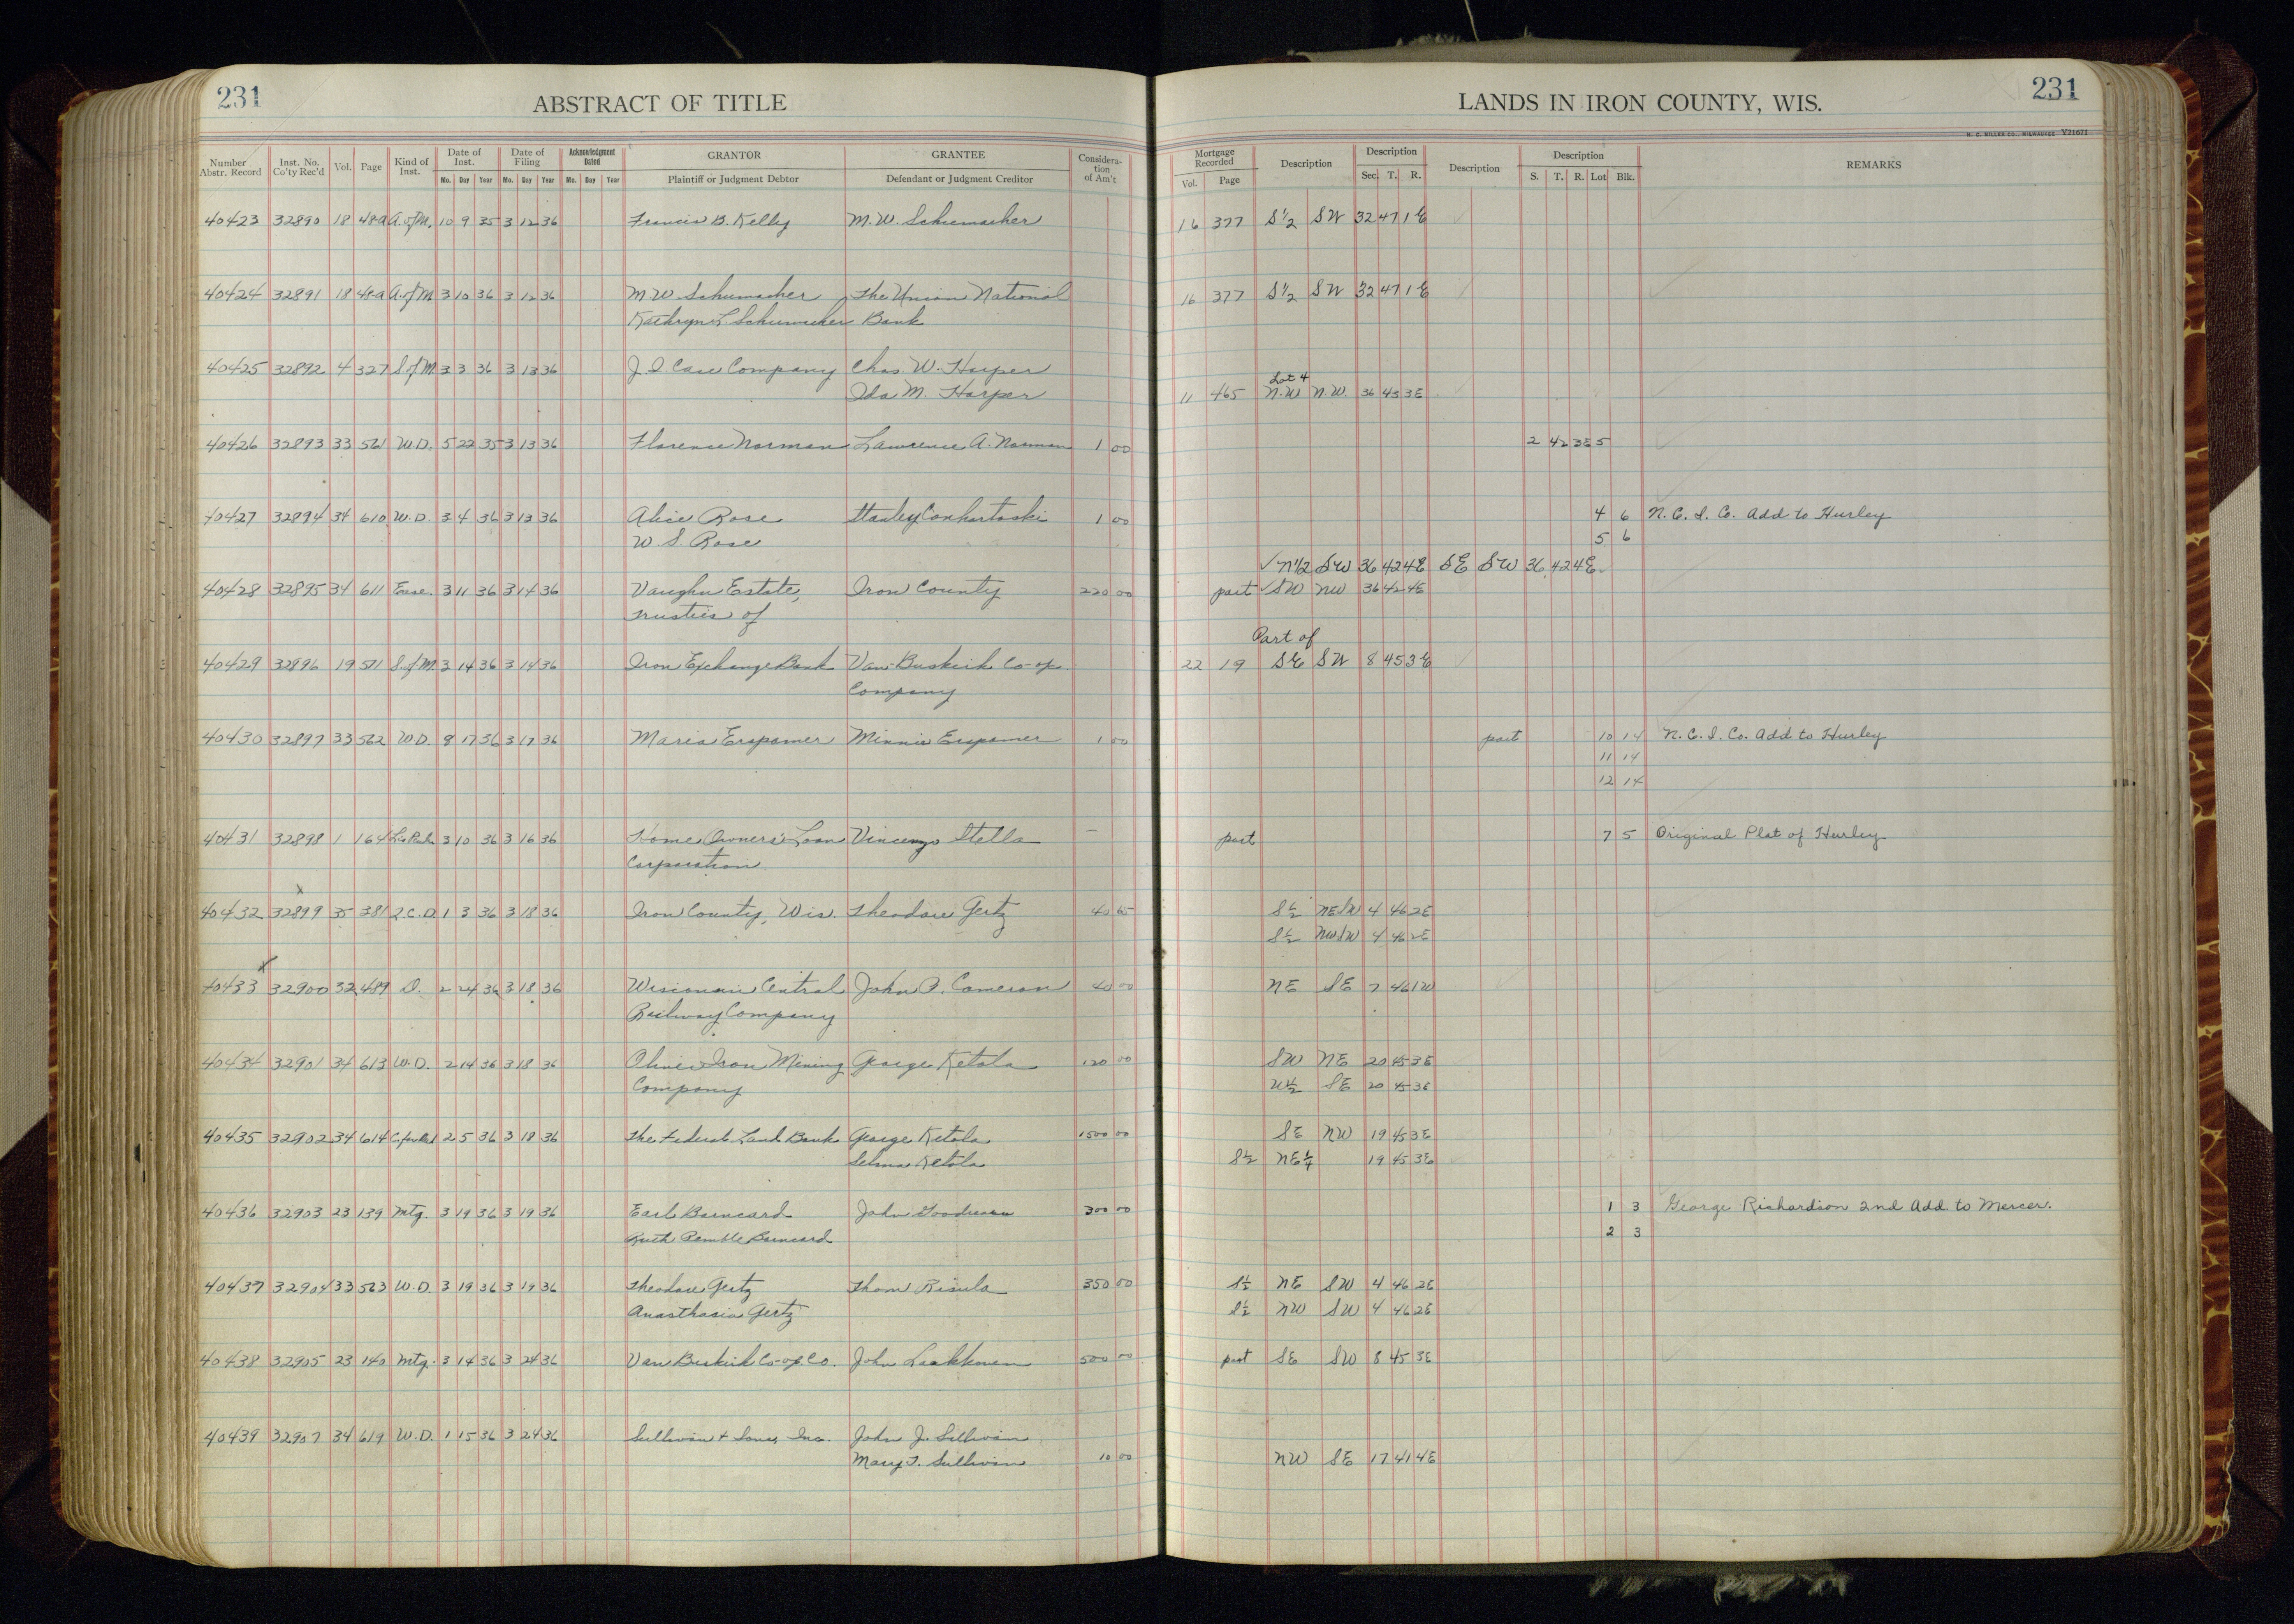 231
ABSTRACT OF TITLE
LANDS IN IRON COUNTY, WIS.
231
H. C. MILLER CO., MILWAUKEE Y21671
Number Abstr. Record | Inst. No. Co'ty Rec'd | Vol. | Page | Kind of Inst. | Date of Inst. Mo. Day Year | Date of Filing Mo. Day Year | Acknowledgment Dated Mo. Day Year | GRANTOR Plaintiff or Judgment Debtor | GRANTEE Defendant or Judgment Creditor | Consideration of Am't | Mortgage Recorded Vol. Page | Description | Description Sec. T. R. | Description | Description S. T. R. Lot Blk. | REMARKS
40423 32890 18 489 A. of M. 10 9 35 3 12 36 Francis B. Kelly M. W. Schumacher 16 377 S½ SW 32 47 1E
40424 32891 18 489 A. of M 3 10 36 3 12 36 M W Schumacher The Union National 16 377 S½ SW 32 47 1E
Kathryn L Schumacher Bank
40425 32892 4 327 S. of M. 3 3 36 3 13 36 J. I. Case Company Chas. W. Harper
Lot 4
Ida M. Harper 11 465 N.W N.W. 36 43 3E
40426 32893 33 561 W.D. 5 22 35 3 13 36 Florence Norman Lawrence A. Norman 1 00 2 42 3E 5
40427 32894 34 610 W.D. 3 4 36 3 13 36 Alice Rose Stanley 1 00 4 6 N. C. I. Co. Add to Hurley
W. S. Rose 5 6
√ N½ SW 36 42 4E SE SW 36 42 4E
40428 32895 34 611 Ease. 3 11 36 3 14 36 Vaughn Estate, Iron County 220 00 part √ SW NW 36 42 4E
Trusties of
Part of
40429 32896 19 571 S. of M. 3 14 36 3 14 36 Iron Exchange Bank Van-Buskirk Co-op. 22 19 SE SW 8 45 3E
Company
40430 32897 33 562 W.D. 8 17 36 3 17 36 Maria Erspamer Minnie Erspamer 1 00 part 10 14 N. C. I. Co. Add to Hurley
11 14
12 14
40431 32898 1 164 3 10 36 3 16 36 Home Owners' Loan Vincenzo Stella — part 7 5 Original Plat of Hurley
Corporation
x
40432 32899 35 381 Q.C.D. 1 3 36 3 18 36 Iron County, Wis. Theodore Gertz 40 65 S½ NE SW 4 46 2E
S½ NW SW 4 46 2E
x
40433 32900 32 489 D. 2 24 36 3 18 36 Wisconsin Central John A. Cameron 40 00 NE SE 7 46 1W
Railway Company
40434 32901 34 613 W.D. 2 14 36 3 18 36 Oliver Iron Mining George Ketola 120 00 SW NE 20 45 3E
Company W½ SE 20 45 3E
40435 32902 34 614 2 5 36 3 18 36 The Federal Land Bank George Ketola 1500 00 SE NW 19 45 3E
Selma Ketola S½ NE¼ 19 45 3E
40436 32903 23 139 Mtg. 3 19 36 3 19 36 Earl Barncard John Goodman 300 00 1 3 George Richardson 2nd Add. to Mercer.
Ruth Pemble Barncard 2 3
40437 32904 33 563 W.D. 3 19 36 3 19 36 Theodore Gertz Thom Risula 350 00 S½ NE SW 4 46 2E
Anasthasia Gertz S½ NW SW 4 46 2E
40438 32905 23 140 Mtg. 3 14 36 3 24 36 Van Buskirk Co-op. Co. John Laakkonen 500 00 part SE SW 8 45 3E
40439 32907 34 619 W.D. 1 15 36 3 24 36 Sullivan & Sons, Inc. John J. Sullivan
Mary T. Sullivan 10 00 NW SE 17 41 4E